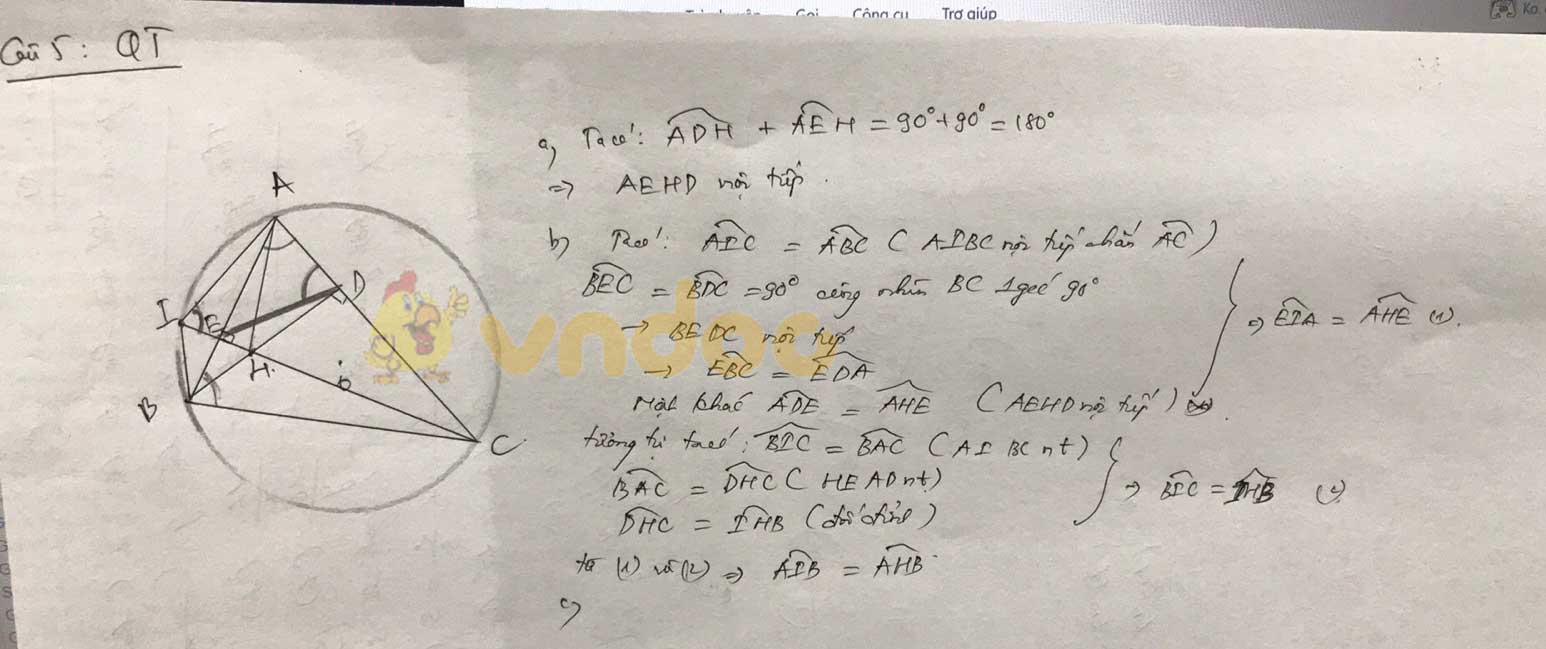 Gọi Công cụ Trợ giúp
Ko
Câu 5: QT
a, Ta có: ADH + AEH = 90° + 90° = 180°
=> AEHD nội tiếp.
b) Ta có: AIC = ABC (AIBC nội tiếp chắn AC)
BEC = BDC = 90° cùng nhìn BC 1 góc 90°
→ BEDC nội tiếp
→ EBC = EDA
Mặt khác ADE = AHE (AEHD nội tiếp)
=> EIA = AHE (1).
tương tự ta có: BIC = BAC (AIBC nt)
BAC = DHC (HEAD nt)
DHC = IHB (đối đỉnh)
=> BIC = IHB (2)
từ (1) và (2) => AIB = AHB
c)
A
I
E
D
H
O
B
C
vndoc